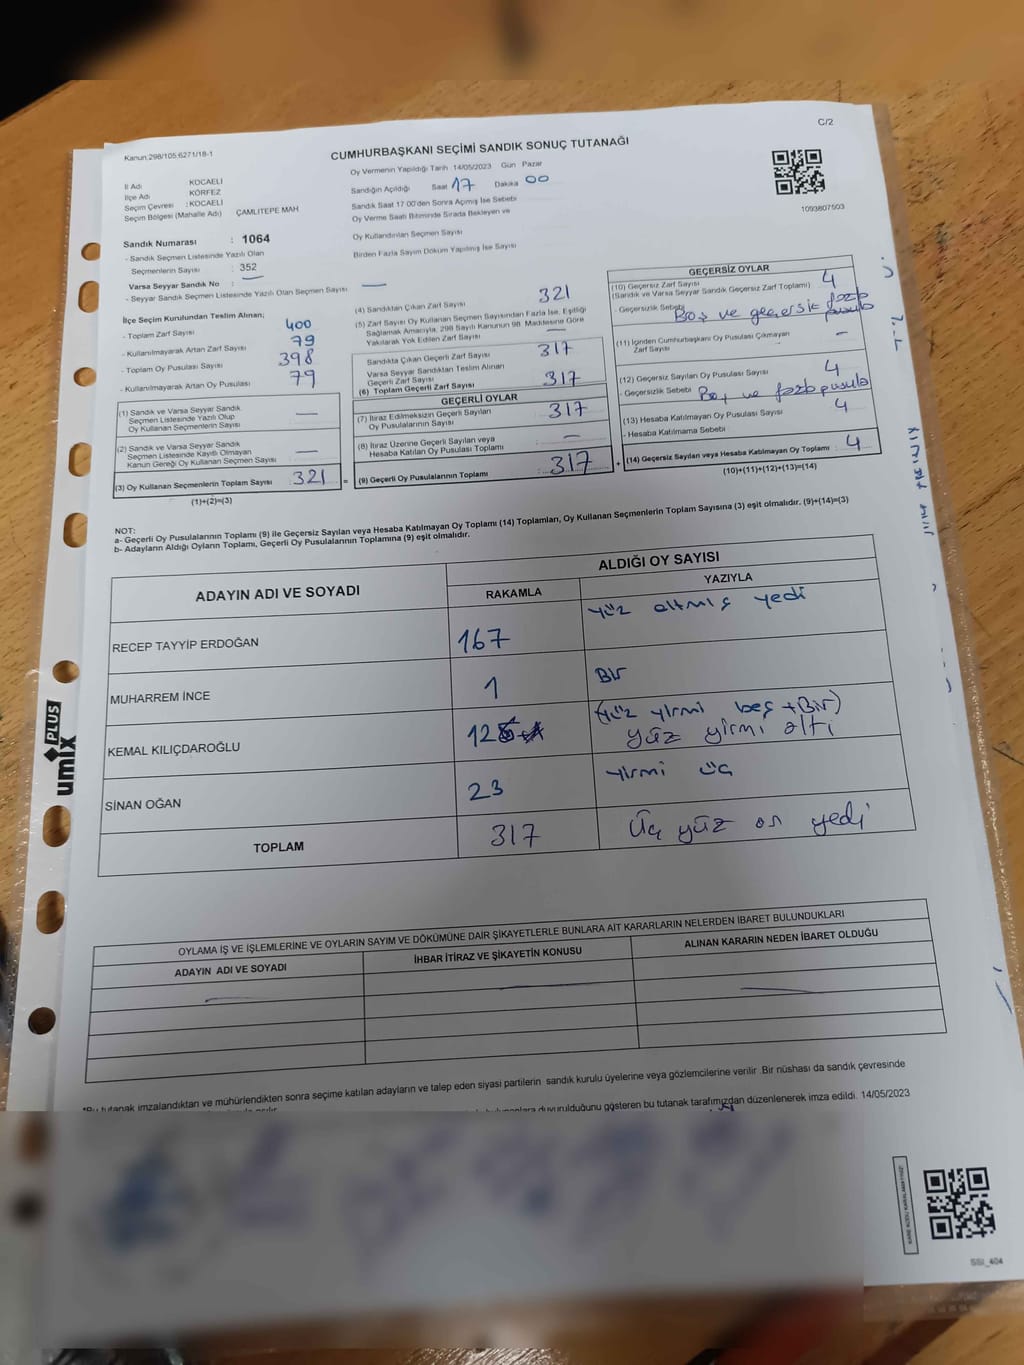 C/2
Kanun:298/105;6271/18-1
CUMHURBAŞKANI SEÇİMİ SANDIK SONUÇ TUTANAĞI
İl Adı KOCAELİ
İlçe Adı KÖRFEZ
Seçim Çevresi : KOCAELİ
Seçim Bölgesi (Mahalle Adı) ÇAMLITEPE MAH
Sandık Numarası : 1064
- Sandık Seçmen Listesinde Yazılı Olan
Seçmenlerin Sayısı : 352
Varsa Seyyar Sandık No : —
- Seyyar Sandık Seçmen Listesinde Yazılı Olan Seçmen Sayısı —
Oy Vermenin Yapıldığı Tarih 14/05/2023 Gün Pazar
Sandığın Açıldığı Saat 17 Dakika 00
Sandık Saat 17 00'den Sonra Açmış İse Sebebi
Oy Verme Saati Bitiminde Sırada Bekleyen ve
Oy Kullandırılan Seçmen Sayısı
Birden Fazla Sayım Döküm Yapılmış İse Sayısı
1093807503
İlçe Seçim Kurulundan Teslim Alınan;
- Toplam Zarf Sayısı 400
- Kullanılmayarak Artan Zarf Sayısı 79
- Toplam Oy Pusulası Sayısı 398
- Kullanılmayarak Artan Oy Pusulası 79
(1) Sandık ve Varsa Seyyar Sandık
Seçmen Listesinde Yazılı Olup
Oy Kullanan Seçmenlerin Sayısı —
(2) Sandık ve Varsa Seyyar Sandık
Seçmen Listesinde Kayıtlı Olmayan
Kanun Gereği Oy Kullanan Seçmen Sayısı —
(3) Oy Kullanan Seçmenlerin Toplam Sayısı : 321
(1)+(2)=(3)
(4) Sandıktan Çıkan Zarf Sayısı 321
(5) Zarf Sayısı Oy Kullanan Seçmen Sayısından Fazla İse, Eşitliği
Sağlamak Amacıyla, 298 Sayılı Kanunun 98. Maddesine Göre
Yakılarak Yok Edilen Zarf Sayısı —
Sandıkta Çıkan Geçerli Zarf Sayısı 317
Varsa Seyyar Sandıktan Teslim Alınan
Geçerli Zarf Sayısı
(6) Toplam Geçerli Zarf Sayısı 317
GEÇERLİ OYLAR
(7) İtiraz Edilmeksizin Geçerli Sayılan
Oy Pusulalarının Sayısı 317
(8) İtiraz Üzerine Geçerli Sayılan veya
Hesaba Katılan Oy Pusulası Toplamı —
= (9) Geçerli Oy Pusulalarının Toplamı : 317
GEÇERSİZ OYLAR
(10) Geçersiz Zarf Sayısı 4
(Sandık ve Varsa Seyyar Sandık Geçersiz Zarf Toplamı)
- Geçersizlik Sebebi Boş ve geçersiz fazla pusula
(11) İçinden Cumhurbaşkanı Oy Pusulası Çıkmayan
Zarf Sayısı —
(12) Geçersiz Sayılan Oy Pusulası Sayısı 4
- Geçersizlik Sebebi Boş ve fazla pusula
(13) Hesaba Katılmayan Oy Pusulası Sayısı 4
- Hesaba Katılmama Sebebi
+ (14) Geçersiz Sayılan veya Hesaba Katılmayan Oy Toplamı : 4
(10)+(11)+(12)+(13)=(14)
NOT:
a- Geçerli Oy Pusulalarının Toplamı (9) ile Geçersiz Sayılan veya Hesaba Katılmayan Oy Toplamı (14) Toplamları, Oy Kullanan Seçmenlerin Toplam Sayısına (3) eşit olmalıdır. (9)+(14)=(3)
b- Adayların Aldığı Oyların Toplamı, Geçerli Oy Pusulalarının Toplamına (9) eşit olmalıdır.
ADAYIN ADI VE SOYADI
ALDIĞI OY SAYISI
RAKAMLA YAZIYLA
RECEP TAYYİP ERDOĞAN 167 yüz altmış yedi
MUHARREM İNCE 1 Bir
KEMAL KILIÇDAROĞLU 126 (yüz yirmi beş + Bir)
yüz yirmi altı
SİNAN OĞAN 23 yirmi üç
TOPLAM 317 Üç yüz on yedi
OYLAMA İŞ VE İŞLEMLERİNE VE OYLARIN SAYIM VE DÖKÜMÜNE DAİR ŞİKAYETLERLE BUNLARA AİT KARARLARIN NELERDEN İBARET BULUNDUKLARI
ADAYIN ADI VE SOYADI İHBAR İTİRAZ VE ŞİKAYETİN KONUSU ALINAN KARARIN NEDEN İBARET OLDUĞU
*Bu tutanak imzalandıktan ve mühürlendikten sonra seçime katılan adayların ve talep eden siyasi partilerin sandık kurulu üyelerine veya gözlemcilerine verilir. Bir nüshası da sandık çevresinde
duyurulduğunu gösteren bu tutanak tarafımızdan düzenlenerek imza edildi. 14/05/2023
umix PLUS
SSI_404